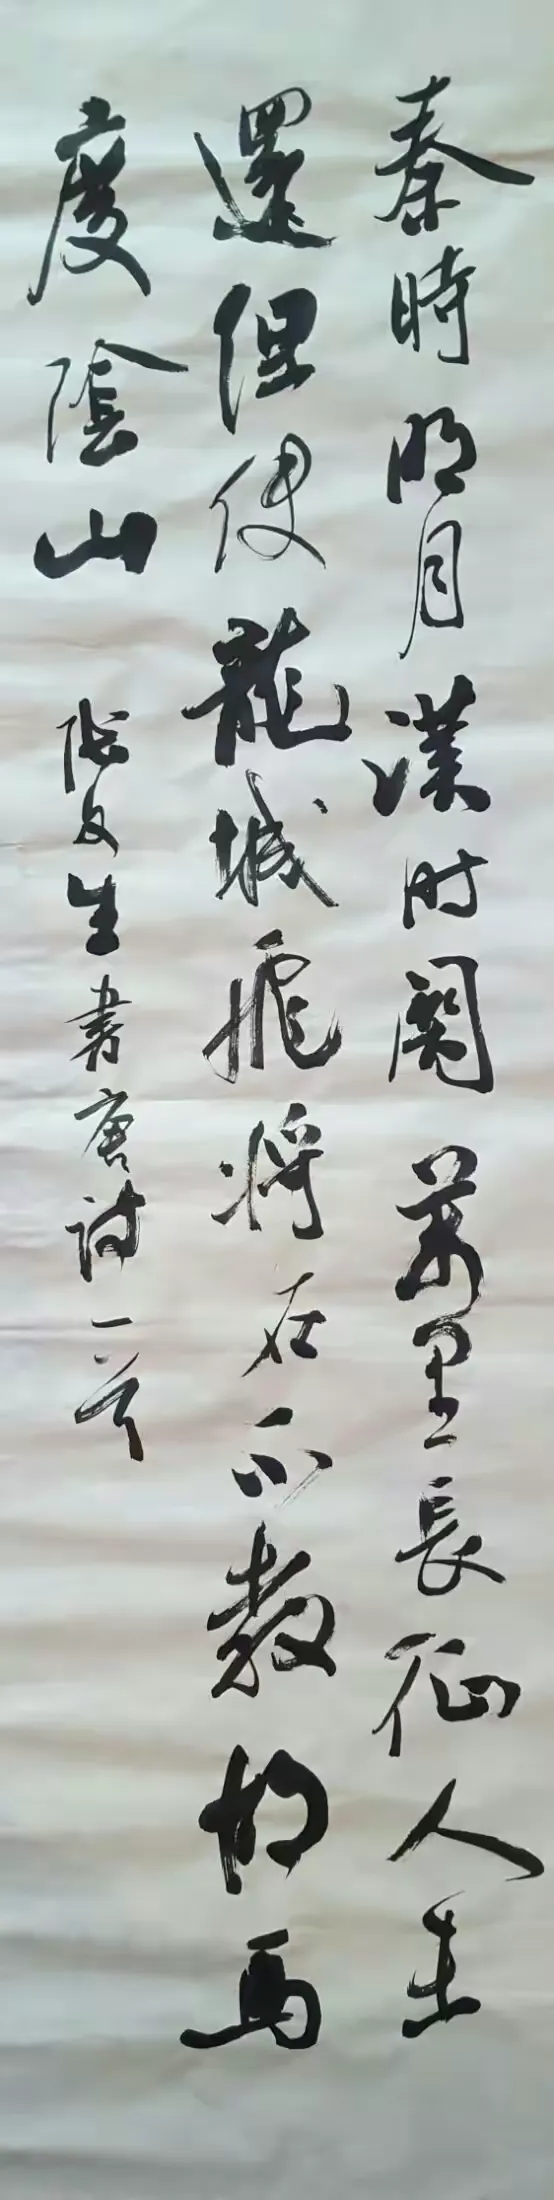 秦時明月漢时關萬里長征人未
還但使龍城飛將在不教胡馬
度陰山 文生書唐诗一首